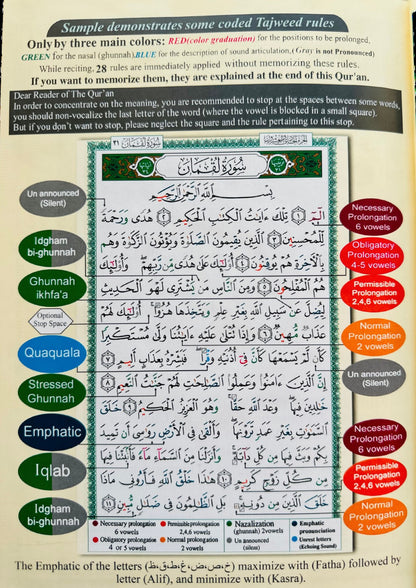 Sample demonstrates some coded Tajweed rules
Only by three main colors: RED(color graduation) for the positions to be prolonged,
GREEN for the nasal (ghunnah),BLUE for the description of sound articulation,( Gray is not Pronounced)
While reciting, 28 rules are immediately applied without memorizing these rules.
If you want to memorize them, they are explained at the end of this Qur'an.
Dear Reader of The Qur'an
In order to concentrate on the meaning, you are recommended to stop at the spaces between some words,
you should non-vocalize the last letter of the word (where the vowel is blocked in a small square).
But if you don't want to stop, please neglect the square and the rule pertaining to this stop.
سُورَةُ لُقْمَانَ ٣١
سُورَةُ لُقْمَانَ
بِسْمِ اللَّهِ الرَّحْمَٰنِ الرَّحِيمِ
الٓمٓ ١ تِلْكَ ءَايَٰتُ الْكِتَٰبِ الْحَكِيمِ ٢ هُدًى وَرَحْمَةً
لِّلْمُحْسِنِينَ ٣ الَّذِينَ يُقِيمُونَ الصَّلَوٰةَ وَيُؤْتُونَ الزَّكَوٰةَ وَهُم
بِالْءَاخِرَةِ هُمْ يُوقِنُونَ ٤ أُولَٰٓئِكَ عَلَىٰ هُدًى مِّن رَّبِّهِمْ وَأُولَٰٓئِكَ
هُمُ الْمُفْلِحُونَ ٥ وَمِنَ النَّاسِ مَن يَشْتَرِى لَهْوَ الْحَدِيثِ
لِيُضِلَّ عَن سَبِيلِ اللَّهِ بِغَيْرِ عِلْمٍ وَيَتَّخِذَهَا هُزُوًا أُولَٰٓئِكَ لَهُمْ
عَذَابٌ مُّهِينٌ ٦ وَإِذَا تُتْلَىٰ عَلَيْهِ ءَايَٰتُنَا وَلَّىٰ مُسْتَكْبِرًا
كَأَن لَّمْ يَسْمَعْهَا كَأَنَّ فِىٓ أُذُنَيْهِ وَقْرًا فَبَشِّرْهُ بِعَذَابٍ أَلِيمٍ ٧
إِنَّ الَّذِينَ ءَامَنُوا وَعَمِلُوا الصَّٰلِحَٰتِ لَهُمْ جَنَّٰتُ النَّعِيمِ ٨
خَٰلِدِينَ فِيهَا وَعْدَ اللَّهِ حَقًّا وَهُوَ الْعَزِيزُ الْحَكِيمُ ٩ خَلَقَ
السَّمَٰوَٰتِ بِغَيْرِ عَمَدٍ تَرَوْنَهَا وَأَلْقَىٰ فِى الْأَرْضِ رَوَٰسِىَ أَن تَمِيدَ
بِكُمْ وَبَثَّ فِيهَا مِن كُلِّ دَآبَّةٍ وَأَنزَلْنَا مِنَ السَّمَآءِ مَآءً فَأَنۢبَتْنَا فِيهَا
مِن كُلِّ زَوْجٍ كَرِيمٍ ١٠ هَٰذَا خَلْقُ اللَّهِ فَأَرُونِى مَاذَا
خَلَقَ الَّذِينَ مِن دُونِهِ بَلِ الظَّٰلِمُونَ فِى ضَلَٰلٍ مُّبِينٍ ١١
Un announced
(Silent)
Idgham
bi-ghunnah
Ghunnah
ikhfa'a
Optional
Stop Space
Quaquala
Stressed
Ghunnah
Emphatic
Iqlab
Idgham
bi-ghunnah
Necessary
Prolongation
6 vowels
Obligatory
Prolongation
4-5 vowels
Permissible
Prolongation
2,4,6 vowels
Normal
Prolongation
2 vowels
Un announced
(Silent)
Necessary
Prolongation
6 vowels
Permissible
Prolongation
2,4,6 vowels
Normal
Prolongation
2 vowels
Necessary prolongation
6 vowels
Permissible prolongation
2,4,6 vowels
Nazalization
(ghunnah) 2vowels
Emphatic
pronounciation
Obligatory prolongation
4 or 5 vowels
Normal prolongation
2 vowels
Un announced
(silent)
Unrest letters
(Echoing Sound)
The Emphatic of the letters (خ،ص،ض،غ،ط،ق،ظ) maximize with (Fatha) followed by
letter (Alif), and minimize with (Kasra).